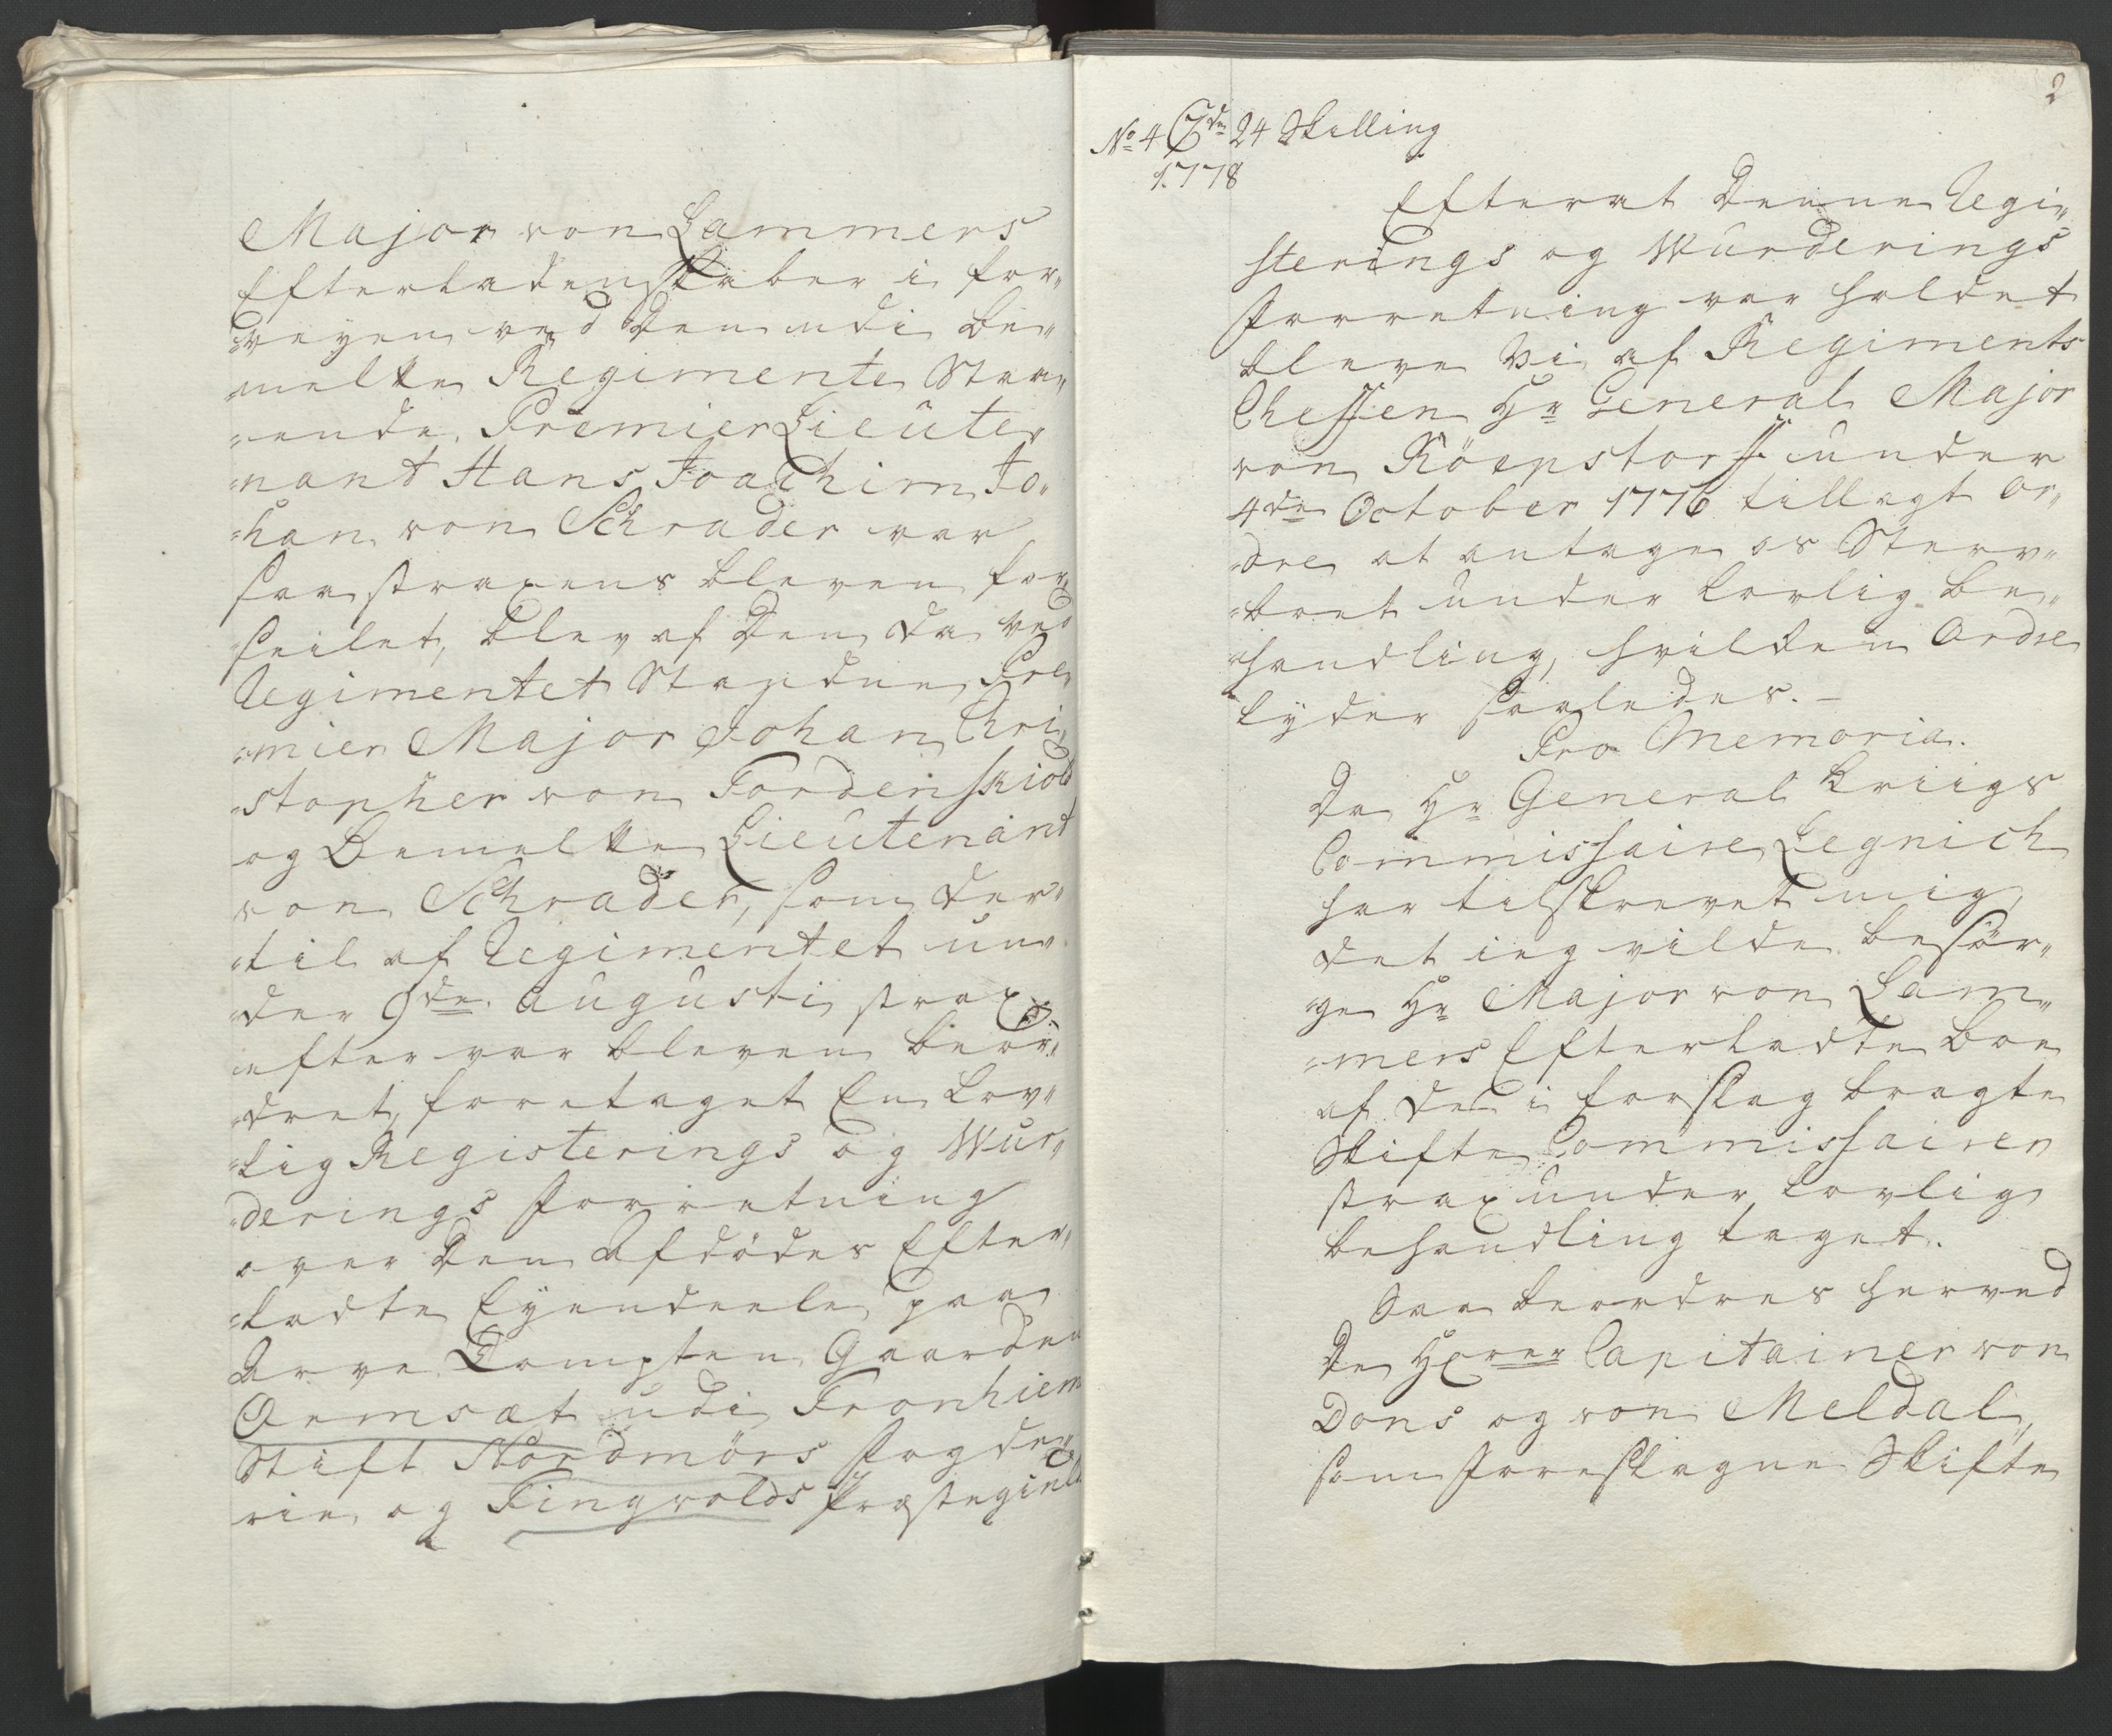 Major von Lammers
Efterladenskaber i for„
„veyen ved den udi be„
„melte Regimente Staa„
„ende Premier Lieute„
„nant Hans Joachim Jo„
„han von Schrader var
saa straxens bleven for„
„seilet, blev af den da ved
Regimentet Staaende Pre„
„mier Major Johan Chri„
„stopher von Tordenskiold
og Bemelte Lieutenant
von Schrader, som der„
„til af Regimentet un„
„der 9de augusti strax
efter var bleven beor„
„dret, foretaget En Lov„
„lig Registerings og Wur„
„derings Forretning
over den Afdödes Efter„
„ladte Eyendeele paa
Arve Tompten Gaarden
Ormsæt udi Tronhiem
Stift Nordmörs Fogde„
rie og Tingvolds Præstegield
2
No 4 24 Skilling
1778
Efterat denne Regi„
sterings og Wurderings
Forretning var holdet
bleve Vi af Regiments
Cheffen Hr General Major
von Röepstorff under
4de October 1776 tillagt Or„
„dre at antage os Sterv„
„boet under lovlig be„
„handling, hvilken Ordre
lyder saaledes. –
Pro Memoria.
Da Hr General Kriigs
Commissaire Legnich
har tilskrevet mig,
det ieg vilde besör„
„ge Hr Major von Lam„
„mers Efterladte Boe
af de i forslag bragte
Skifte Commissairer
strax under lovlig
behandling taget.
Saa beordres herved
De Herrer Capitainer von
Dons og von Meldal,
som Foreslagne Skifte